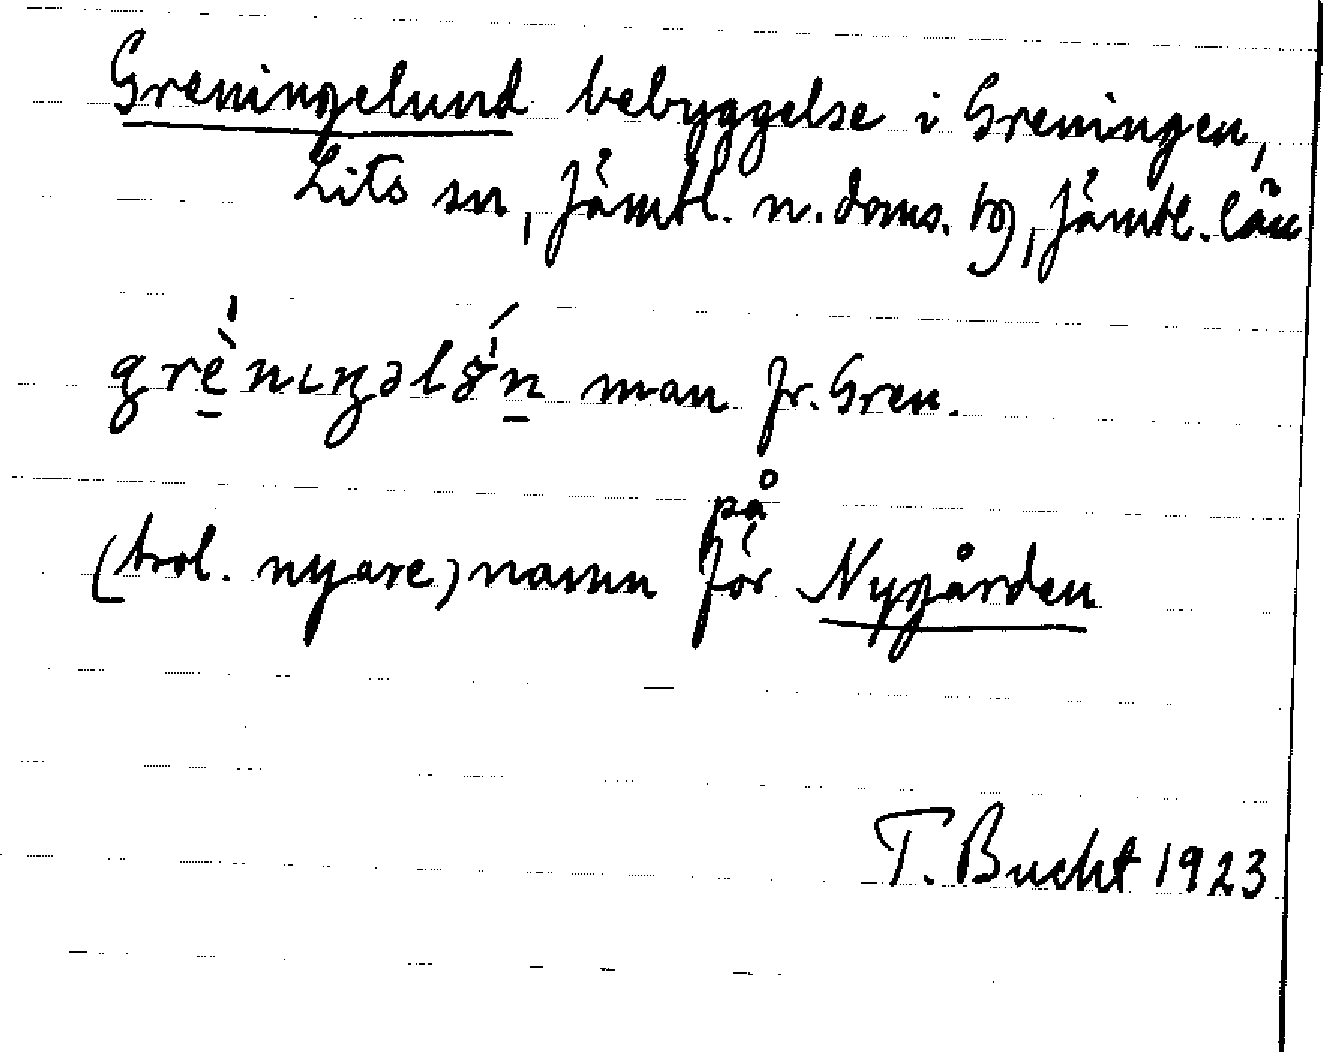 Greningelund bebyggelse i Greningen,
Lits sn, Jämtl. n. doms. tg, Jämtl. län
grè̱nıŋəlǿn̠ man fr. Gren.
på
(trol. nyare) namn för Nygården
T. Bucht 1923